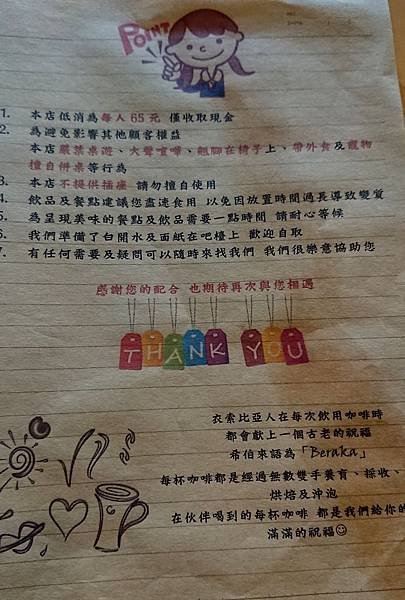 POINT
1. 本店低消為每人65元 僅收取現金
2. 為避免影響其他顧客權益
本店嚴禁桌遊、大聲喧嘩、翹腳在椅子上、帶外食及寵物
擅自併桌等行為
3. 本店不提供插座 請勿擅自使用
4. 飲品及餐點建議您盡速食用 以免因放置時間過長導致變質
5. 為呈現美味的餐點及飲品需要一點時間 請耐心等候
6. 我們準備了白開水及面紙在吧檯上 歡迎自取
7. 有任何需要及疑問可以隨時來找我們 我們很樂意協助您
感謝您的配合 也期待再次與您相遇
THANK YOU
衣索比亞人在每次飲用咖啡時
都會獻上一個古老的祝福
希伯來語為「Beraka」
每杯咖啡都是經過無數雙手養育、採收、
烘焙及沖泡
在伙伴喝到的每杯咖啡 都是我們給你的
滿滿的祝福☺